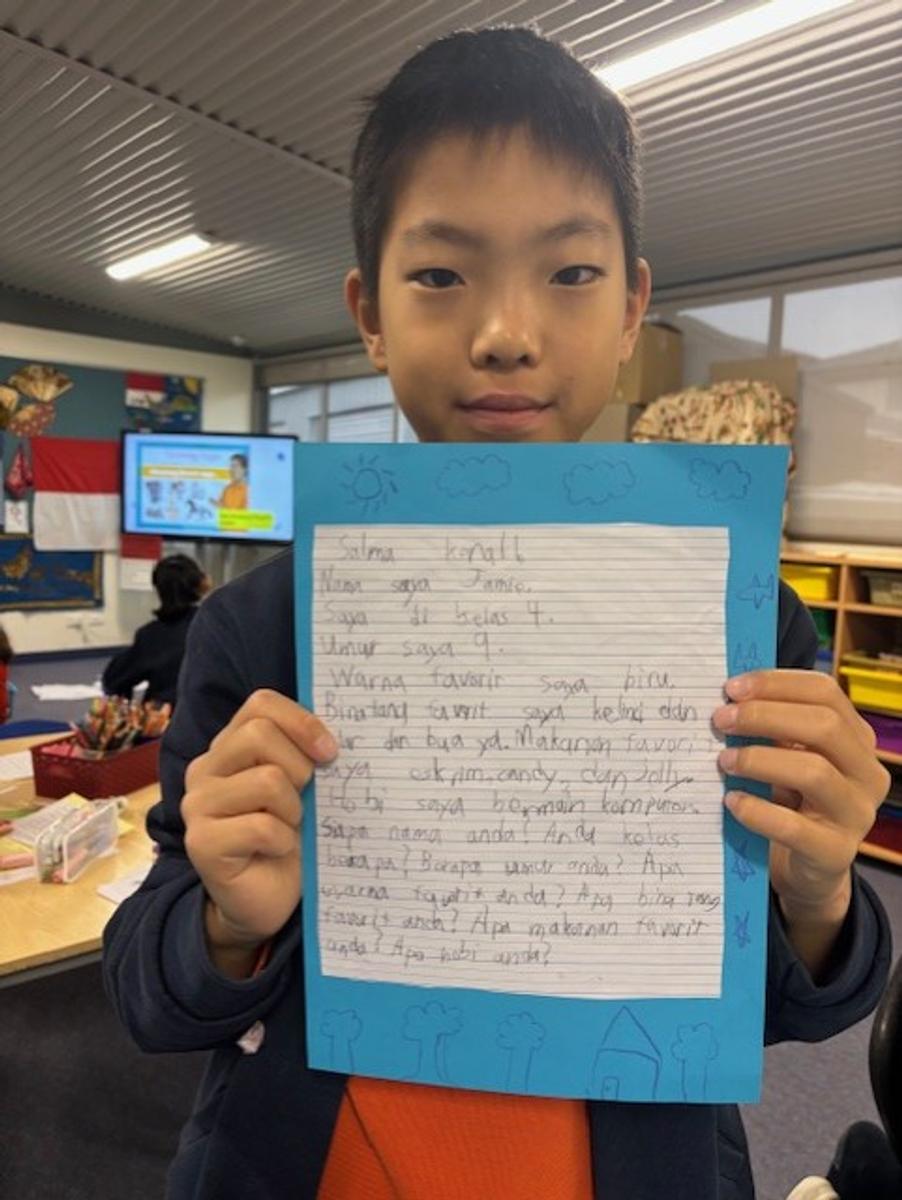 Salma kenal!
Nama saya Jamie.
Saya di kelas 4.
Umur saya 9.
Warna favorir saya biru.
Binatang favorit saya kelinci dan
dan buaya. Makanan favorit
saya eskrim, candy, dan Jolly.
Hobi saya bermain komputer.
Siapa nama anda? Anda kelas
berapa? Berapa umur anda? Apa
warna favorit anda? Apa binatang
favorit anda? Apa makanan favorit
anda? Apa hobi anda?